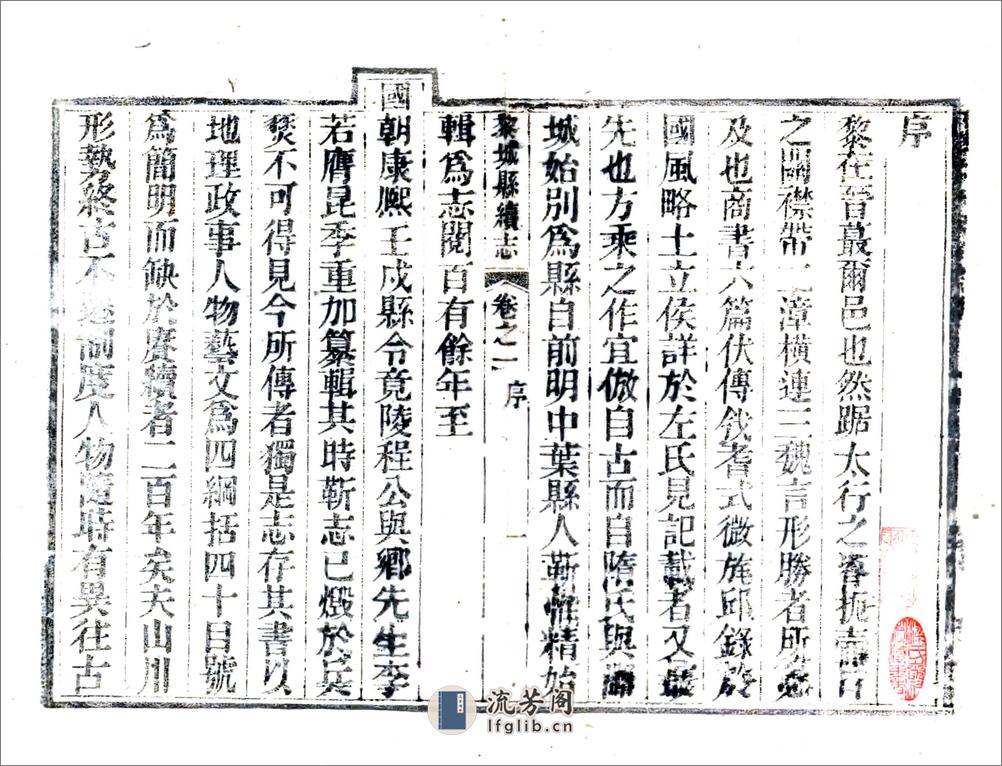 序
黎在晉蕞爾邑也然踞太行之脊扼壺口
之關襟帶二漳橫連三魏言形勝者所必
及也商書六篇伏傳伐耆式微旄邱錄於
國風略土立侯詳於左氏見記載者又最
先也方乘之作宜倣自古而自隋氏與潞
城始別為縣自前明中葉縣人靳惟精始
輯為志閱百有餘年至
國朝康熙壬戌縣令竟陵程公與鄉先生李
若膺昆季重加纂輯其時靳志已燬於兵
燹不可得見今所傳者獨是志存其書以
地理政事人物藝文為四綱括四十目號
為簡明而缺於賡續者二百年矣夫山川
形勢終古不迻制度人物隨時有異往古
黎城縣續志
卷之一
序
一
流芳阁
lfglib.cn